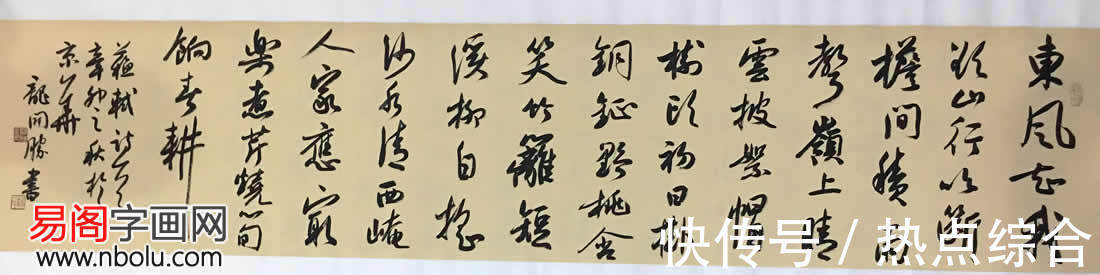 東風知我
欲山行吹斷
檐間積雨
聲嶺上晴
雲披絮帽
樹頭初日掛
銅鉦野桃含
笑竹籬短
溪柳自搖
沙水清西崦
人家應最
樂煮芹燒筍
餉春耕
蘇軾詩一首
辛卯之秋於
京華
龍開勝書
易阁字画网
www.nbolu.com
快传号 / 热点综合